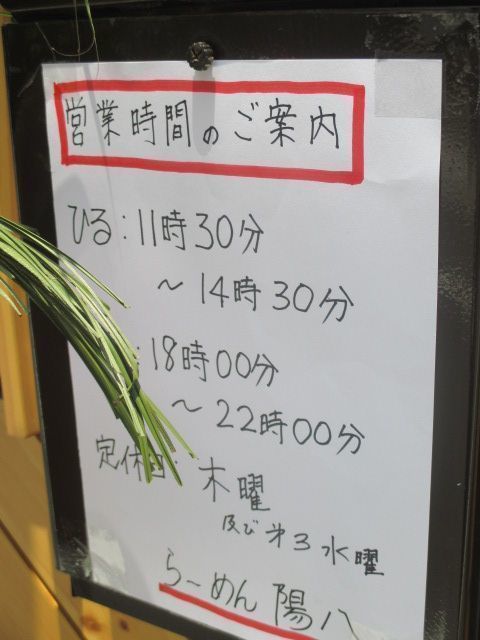 営業時間のご案内
ひる:11時30分
~14時30分
:18時00分
~22時00分
定休日: 木曜
及び第3水曜
らーめん 陽八